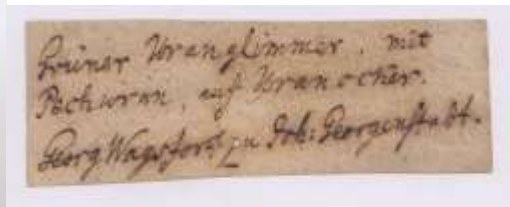 Grüner Uranglimmer, mit
Pechuran, auf Uranocher.
Georg Wagsfort zu Joh: Georgenstadt.